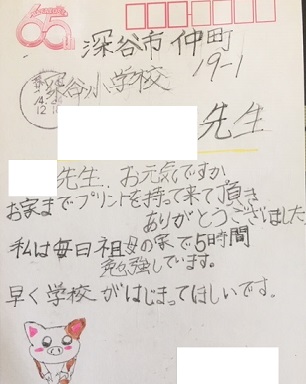 65
深谷市 仲町
19-1
深谷小学校
先生
先生. お元気ですか。
お家までプリントを持って来て頂き
ありがとうございました。
私は毎日祖母の家で5時間
勉強しています。
早く学校がはじまってほしいです。